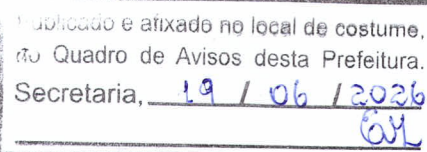 Publicado e afixado no local de costume,
do Quadro de Avisos desta Prefeitura.
Secretaria, 19 / 06 / 2026